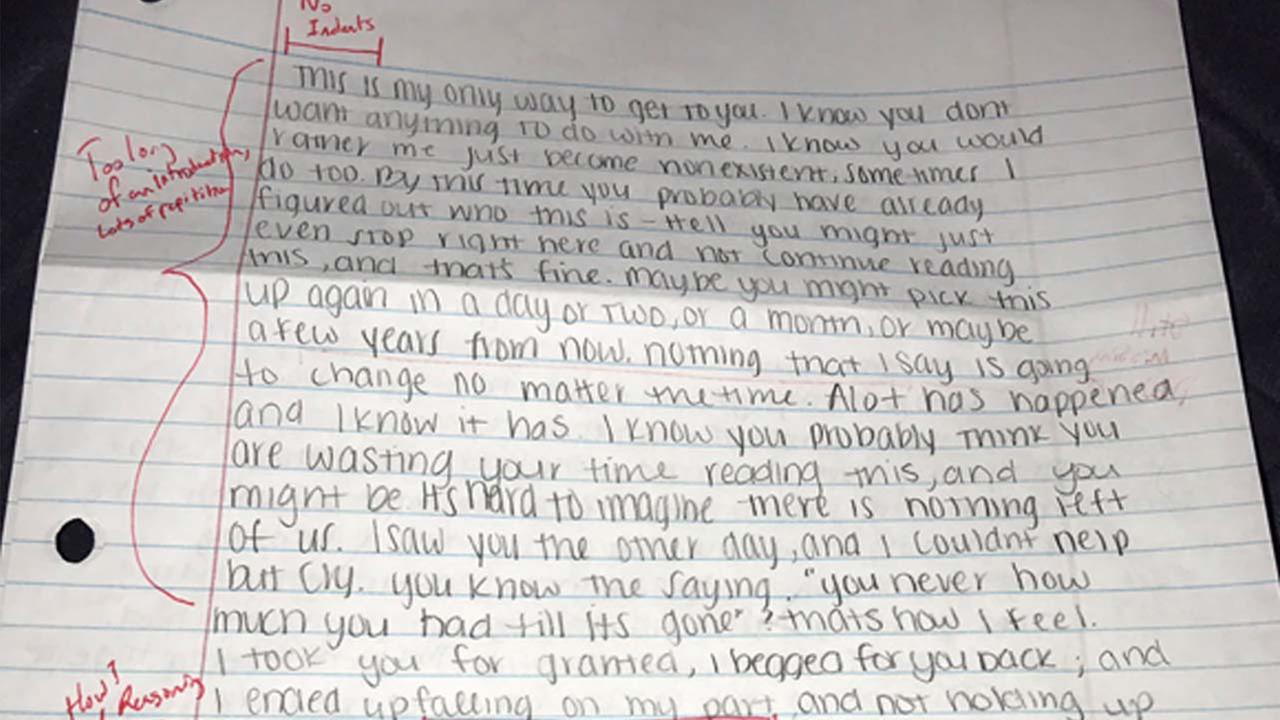 No
Indents
This is my only way to get to you. I know you dont
want anything to do with me. I know you would
rather me just become nonexistent, sometimes I
do too. By this time you probably have already
figured out who this is - Hell you might just
even stop right here and not continue reading
this, and that's fine. maybe you might pick this
up again in a day or two, or a month, or maybe
a few years from now. nothing that I say is going
to change no matter the time. Alot has happened,
and I know it has. I know you probably think you
are wasting your time reading this, and you
might be. It's hard to imagine there is nothing left
of us. I saw you the other day, and I couldnt help
but cry. you know the saying, "you never how
much you had till its gone"? thats how I feel.
I took you for granted, I begged for you back, and
I ended up falling on my part, and not holding up
Too long
of an introduction,
Lots of repitition
How?
Reasoning